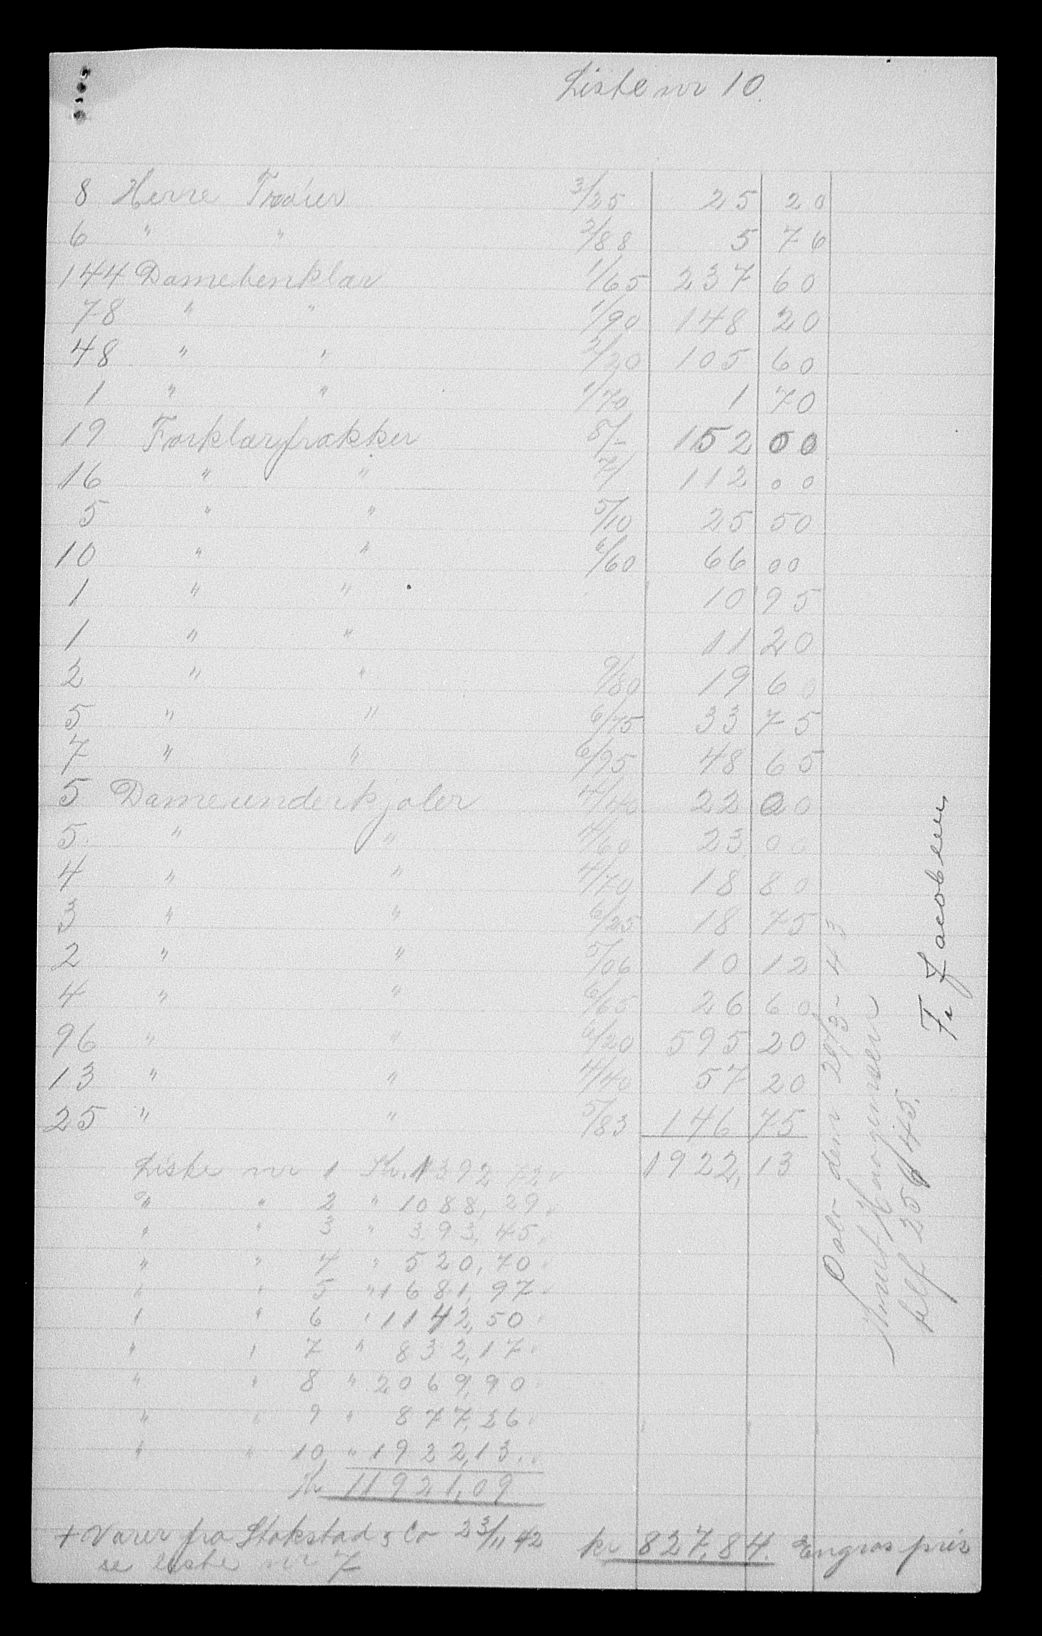 Liste nr 10.
8 Herre Trøier 3/25 25 20
6 " " 2/88 5 76
144 Damebenklær 1/65 237 60
78 " " 1/90 148 20
48 " " 2/20 105 60
1 " " 1/70 1 70
19 Forklærfrakker 8/- 152 00
16 " " 7/ 112 00
5 " " 5/10 25 50
10 " " 6/60 66 00
1 " " 10 95
1 " " 11 20
2 " " 9/80 19 60
5 " " 6/75 33 75
7 " " 6/95 48 65
5 Dameunderkjoler 4/40 22 00
5 " " 4/60 23 00
4 " " 4/70 18 80
3 " " 6/25 18 75
2 " " 5/06 10 12
4 " " 6/65 26 60
96 " " 6/20 595 20
13 " " 4/40 57 20
25 " " 5/83 146 75
1922,13
Liste nr 1 Kr. 1392 72
" " 2 " 1088,29
" " 3 " 393,45
" " 4 " 520,70
" " 5 " 1681,97
" " 6 " 1142,50
" " 7 " 832,17
" " 8 " 2069,90
" " 9 " 877,26
" " 10 " 1922,13
Kr 11921,09
+ Varer fra Stokstad & Co 23/11 42 kr 827,84. Engros pris
se liste nr 7
Oslo den 29/3-43
Knut Haagensen
telf 256145.
Fr Jacobsen